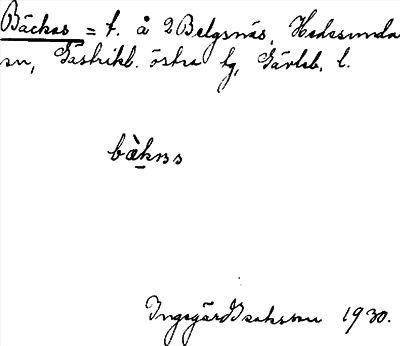 Bäckas = t. å 2 Belgsnäs, Hedesunda
sn, Gästrikl. östra tg, Gävleb. l.
bàkas
Ingegärd Isaksson 1930.